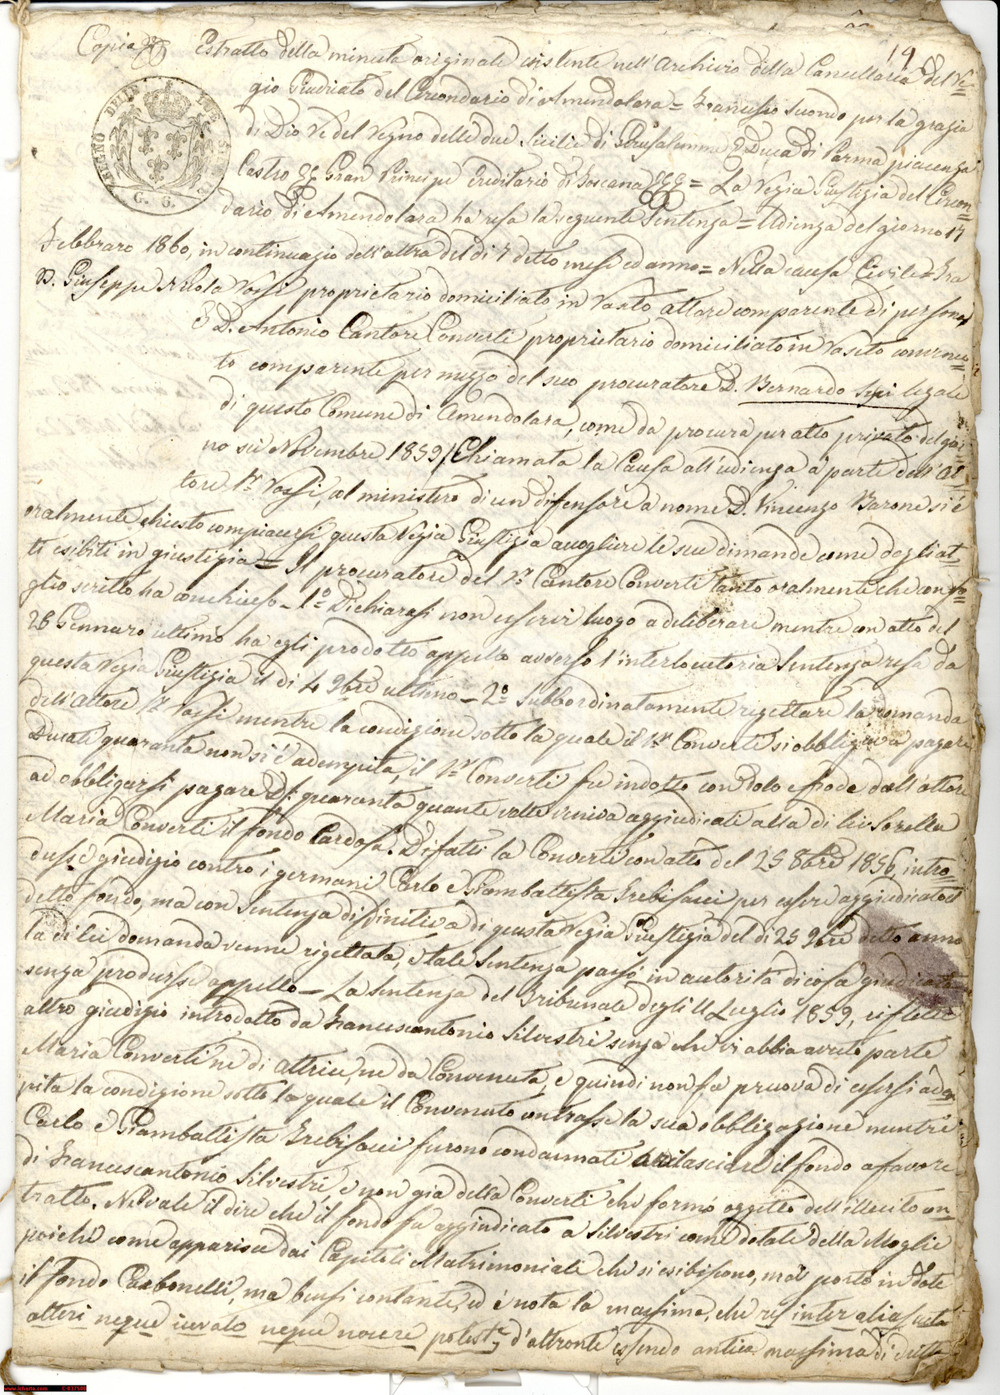 19
Copia Estratto della minuta originale esistente nell'Archivio della Cancellaria del Re=
gio Giudicato del Circondario di Amendolara = Francesco secondo per la grazia
di Dio Re del Regno delle due Sicilie di Gerusalemme & Duca di Parma piacenza
Castro && Gran Principe Ereditario di Toscana &&& = La Regia Giustizia del Circon=
dario di Amendolara ha resa la seguente Sentenza = Udienza del giorno 17
REGNO DELLE DUE SICILIE
G. 6.
Febbraro 1860, in continuazio dell'altra del dì 7 detto mese ed anno = Nella causa Civile Fra
D. Giuseppe Nicola Rossi proprietario domiciliato in attore comparente di persona
E D. Antonio Cantore Converti proprietario domiciliato in Roseto convenu=
to comparente per mezzo del suo procuratore D. Bernardo legale
di questo Comune di Amendolara, come da procura per atto privato del gior=
no sei Novembre 1859/ Chiamata la Causa all'udienza a parte dell'At=
tore Sr. Rossi, al ministero di un difensore a nome D. Vincenzo Barone si è
oralmente chiesto compiacersi questa Regia Giustizia accogliere le sue dimande come dagli at=
ti esibiti in giustizia = Il procuratore del Sr. Cantore Converti tanto oralmente che con fo=
glio scritto ha conchiuso - 1.o Dichiararsi non esservi luogo a deliberare mentre con atto del
26 Gennaro ultimo ha egli prodotto appello avverso l'interlocutoria Sentenza resa da
questa Regia Giustizia il dì 4 9bre ultimo - 2.o Subbordinatamente rigettare la domanda
dell'Attore Sr. Rossi mentre la condizione sotto la quale il Sr. Converti si obbligava pagare
Ducati quaranta non si è adempita, il Sr. Converti fu indotto con dolo e frode dall'attore
ad obbligarsi pagare D. quaranta quante volte veniva aggiudicati alla di lui Sorella
Maria Converti il fondo Cardosa. Difatti la Converti con atto del 25 8bre 1856, intro=
dusse giudizio contro i germani Carlo e Giambattista Trebisacci per essere aggiudicato il
detto fondo, ma con Sentenza difinitiva di questa Regia Giustizia del dì 25 9bre detto anno
la di lei domanda venne rigettata, e tale Sentenza passò in autorità di cosa giudicata
senza prodursi appello - La Sentenza del Tribunale degli 11 Luglio 1859, riflette
altro giudizio introdotto da Francescantonio Silvestri senza che vi abbia avuto parte
Maria Converti ne di attrice, ne da Convenuta, e quindi non fa pruova di essersi adem=
pita la condizione sotto la quale il Convenuto contrasse la sua obbligazione mentre
Carlo e Giambattista Trebisacci furono condannati a rilasciare il fondo a favore
di Francescantonio Silvestri, e non già della Converti che formò oggetto dell'illecito con=
tratto. Ne vale il dire che il fondo fu aggiudicato a Silvestri come dotale della Moglie
poichè come apparisce dai Capitoli Matrimoniali che si esibiscono, non portò in dote
il fondo Carbonelli, ma bensì contante, ed è nota la massima, che res inter alios acta
alteri neque iuvare neque nocere potest, d'altronte essendo antica massima di dritto
www.inharta.com